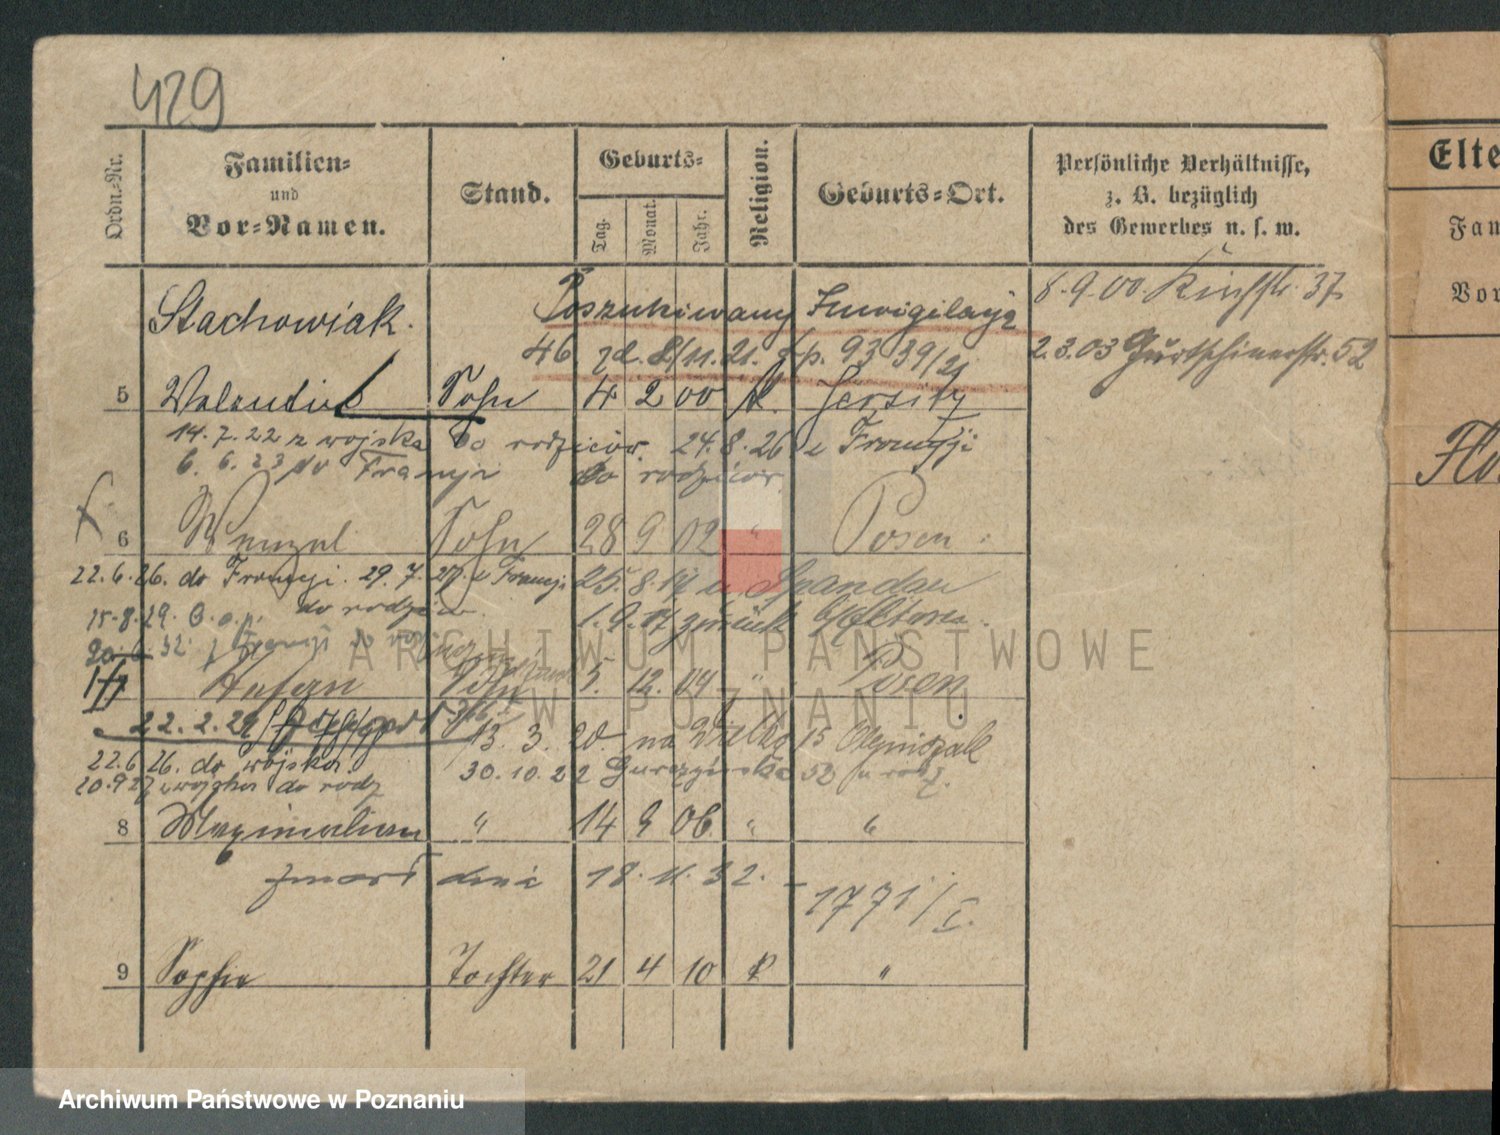 429
Ordn.-Nr.
Familien-
und
Vor-Namen.
Stand.
Geburts-
Tag.
Monat.
Jahr.
Religion.
Geburts-Ort.
Persönliche Verhältnisse,
z. B. bezüglich
des Gewerbes u. s. w.
Elte
Fam
Vor
Stachowiak. Poszukiwany Inwigilacja 8.9.00. 37
46 21. 93 39/21 2.3.03 Gurtschinerstr. 52
5 Valentin Sohn 4 2 00 K. Jersitz
14.7.22 z wojska do rodziców. 24.8.26 z Francji
6.6.23 do Francji do rodziców
6 Wenzel Sohn 28 9 02 " Posen.
22.6.26. do Francji. 29.7. z Francji 25.8.17 n Spandau
15.8.29. do rodziców. 1.9.17 zurück b/Eltern.
32 z Francji do
Stefan Sohn 5. 12. 04 " Posen
22.2.21 13. 3. 20. na
22.6.26. do wojska. 30.10.22 52 u rodz.
20.9.27 z wojska do rodz
8 Maximilian " 14 9 06 " "
zmarł dnia 18.11.32. - 1771/I.
9 Sophie Tochter 21 4 10 K "
ARCHIWUM PAŃSTWOWE
W POZNANIU
Archiwum Państwowe w Poznaniu